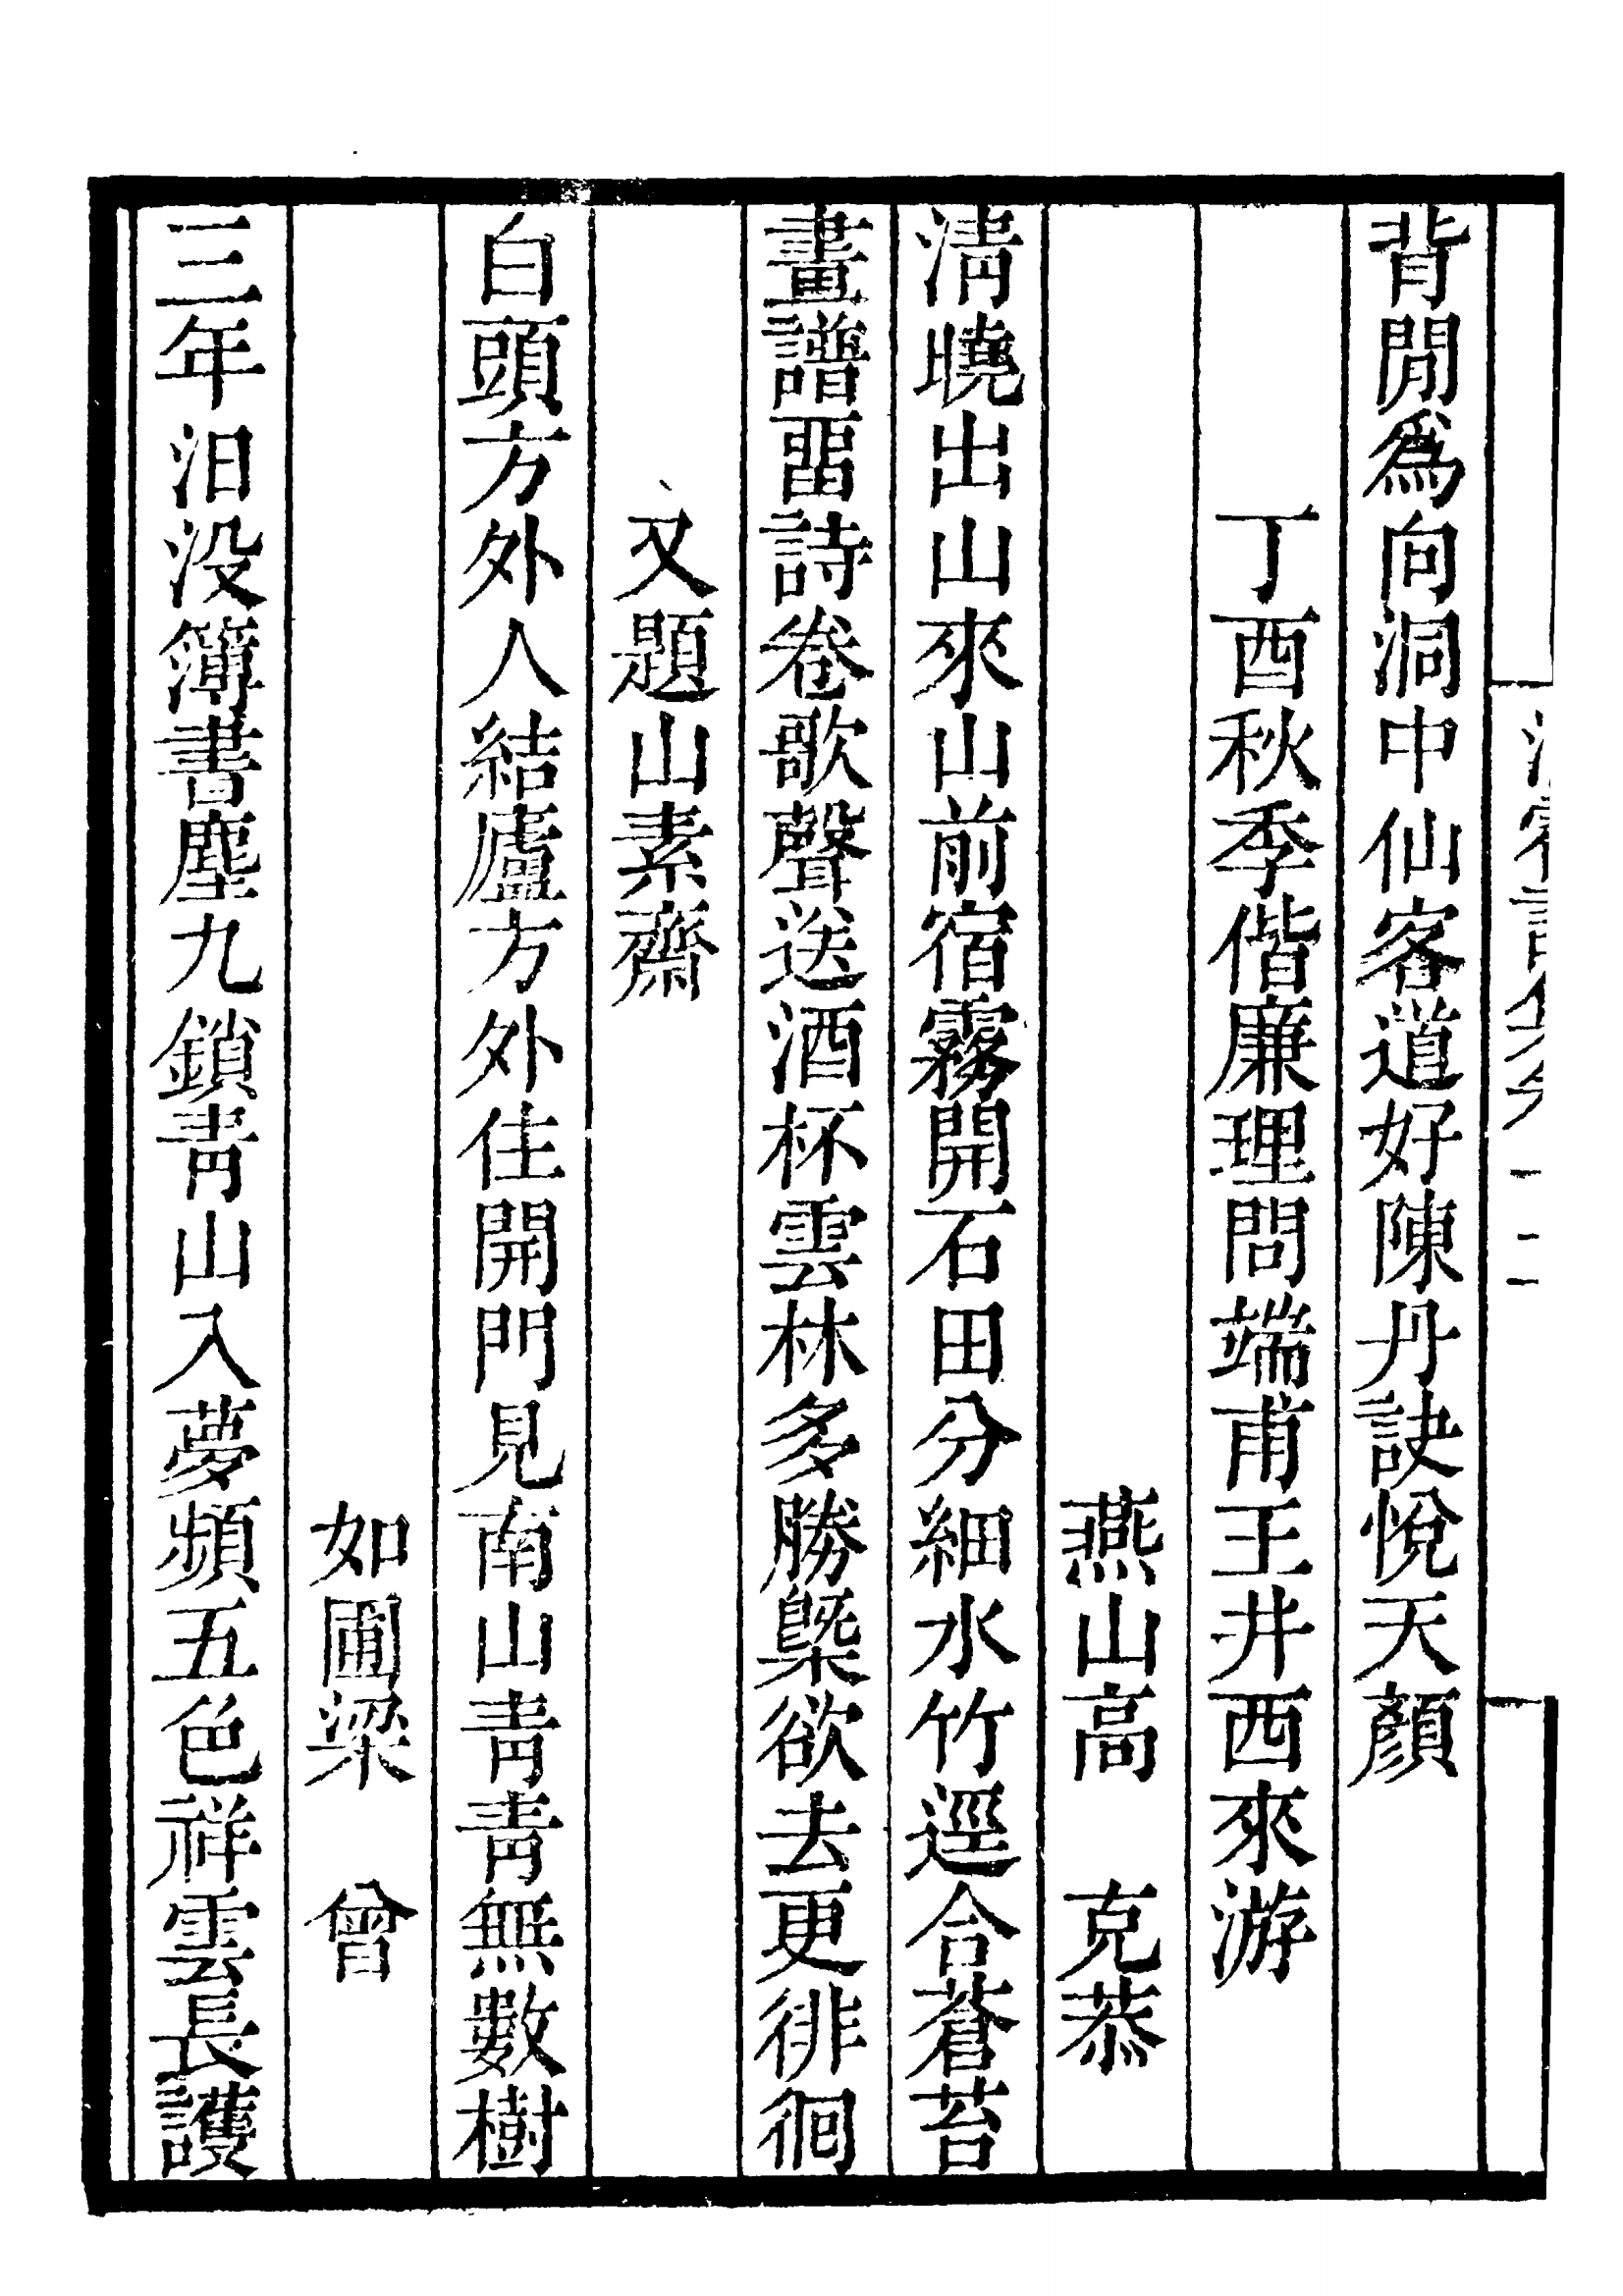 背閒爲向洞中仙客道好陳丹訣悅天顏
丁酉秋季偕廉理問端甫王井西來游
燕山高　克恭
淸曉出山來山前宿霧開石田分細水竹逕合蒼苔
畫譜畱詩卷歌聲送酒杯雲林多勝槩欲去更徘徊
又題山素齋
白頭方外人結廬方外住開門見南山靑靑無數樹
如圃梁　曾
三年汨没簿書塵九鎖靑山入夢頻五色祥雲長護